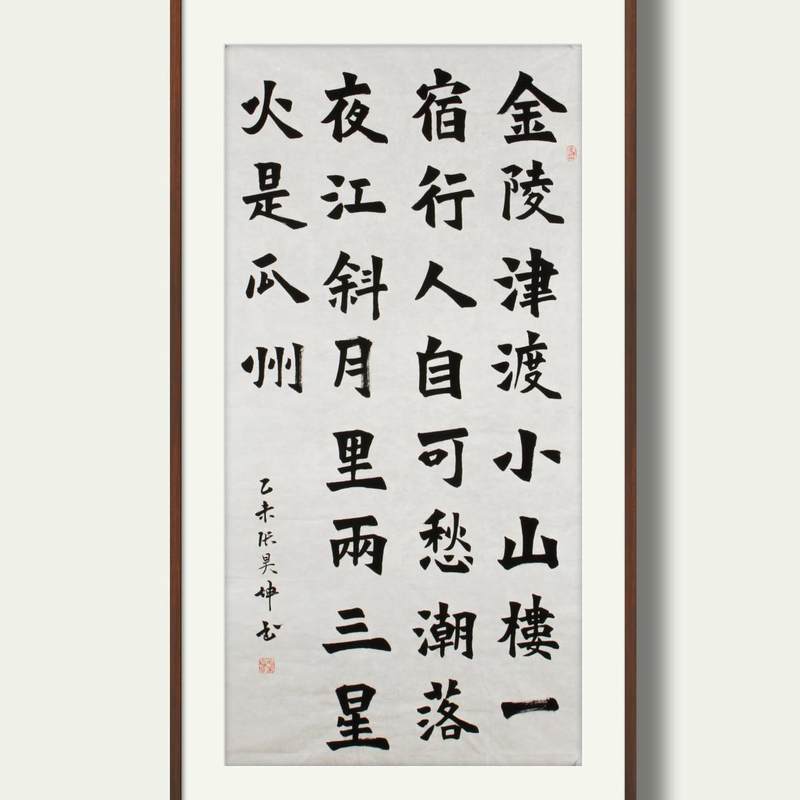 金陵津渡小山樓一
宿行人自可愁潮落
夜江斜月里兩三星
火是瓜州
乙未張昊坤書